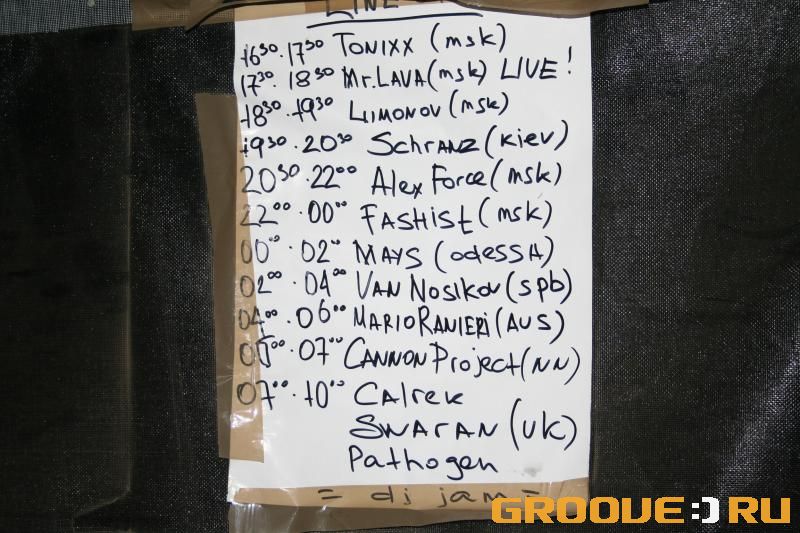 LINE
16³⁰·17³⁰ TONIXX (msk)
17³⁰·18³⁰ Mr.LAVA (msk) LIVE!
18³⁰·19³⁰ LIMONOV (msk)
19³⁰·20³⁰ SchRANZ (kiev)
20³⁰·22⁰⁰ Alex Force (msk)
22⁰⁰·00⁰⁰ FASHIST (msk)
00⁰⁰·02⁰⁰ MAYS (odessA)
02⁰⁰·04⁰⁰ VAN NOSIKOV (spb)
04⁰⁰·06⁰⁰ MARIO RANIERI (AUS)
06⁰⁰·07⁰⁰ CANNON Project (NN)
07⁰⁰·10⁰⁰ CAlrek
SWARAN (UK)
Pathogen
= dj jam =
GROOVE:)RU